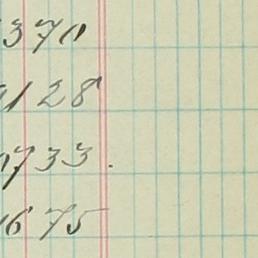 370
128
733.
675